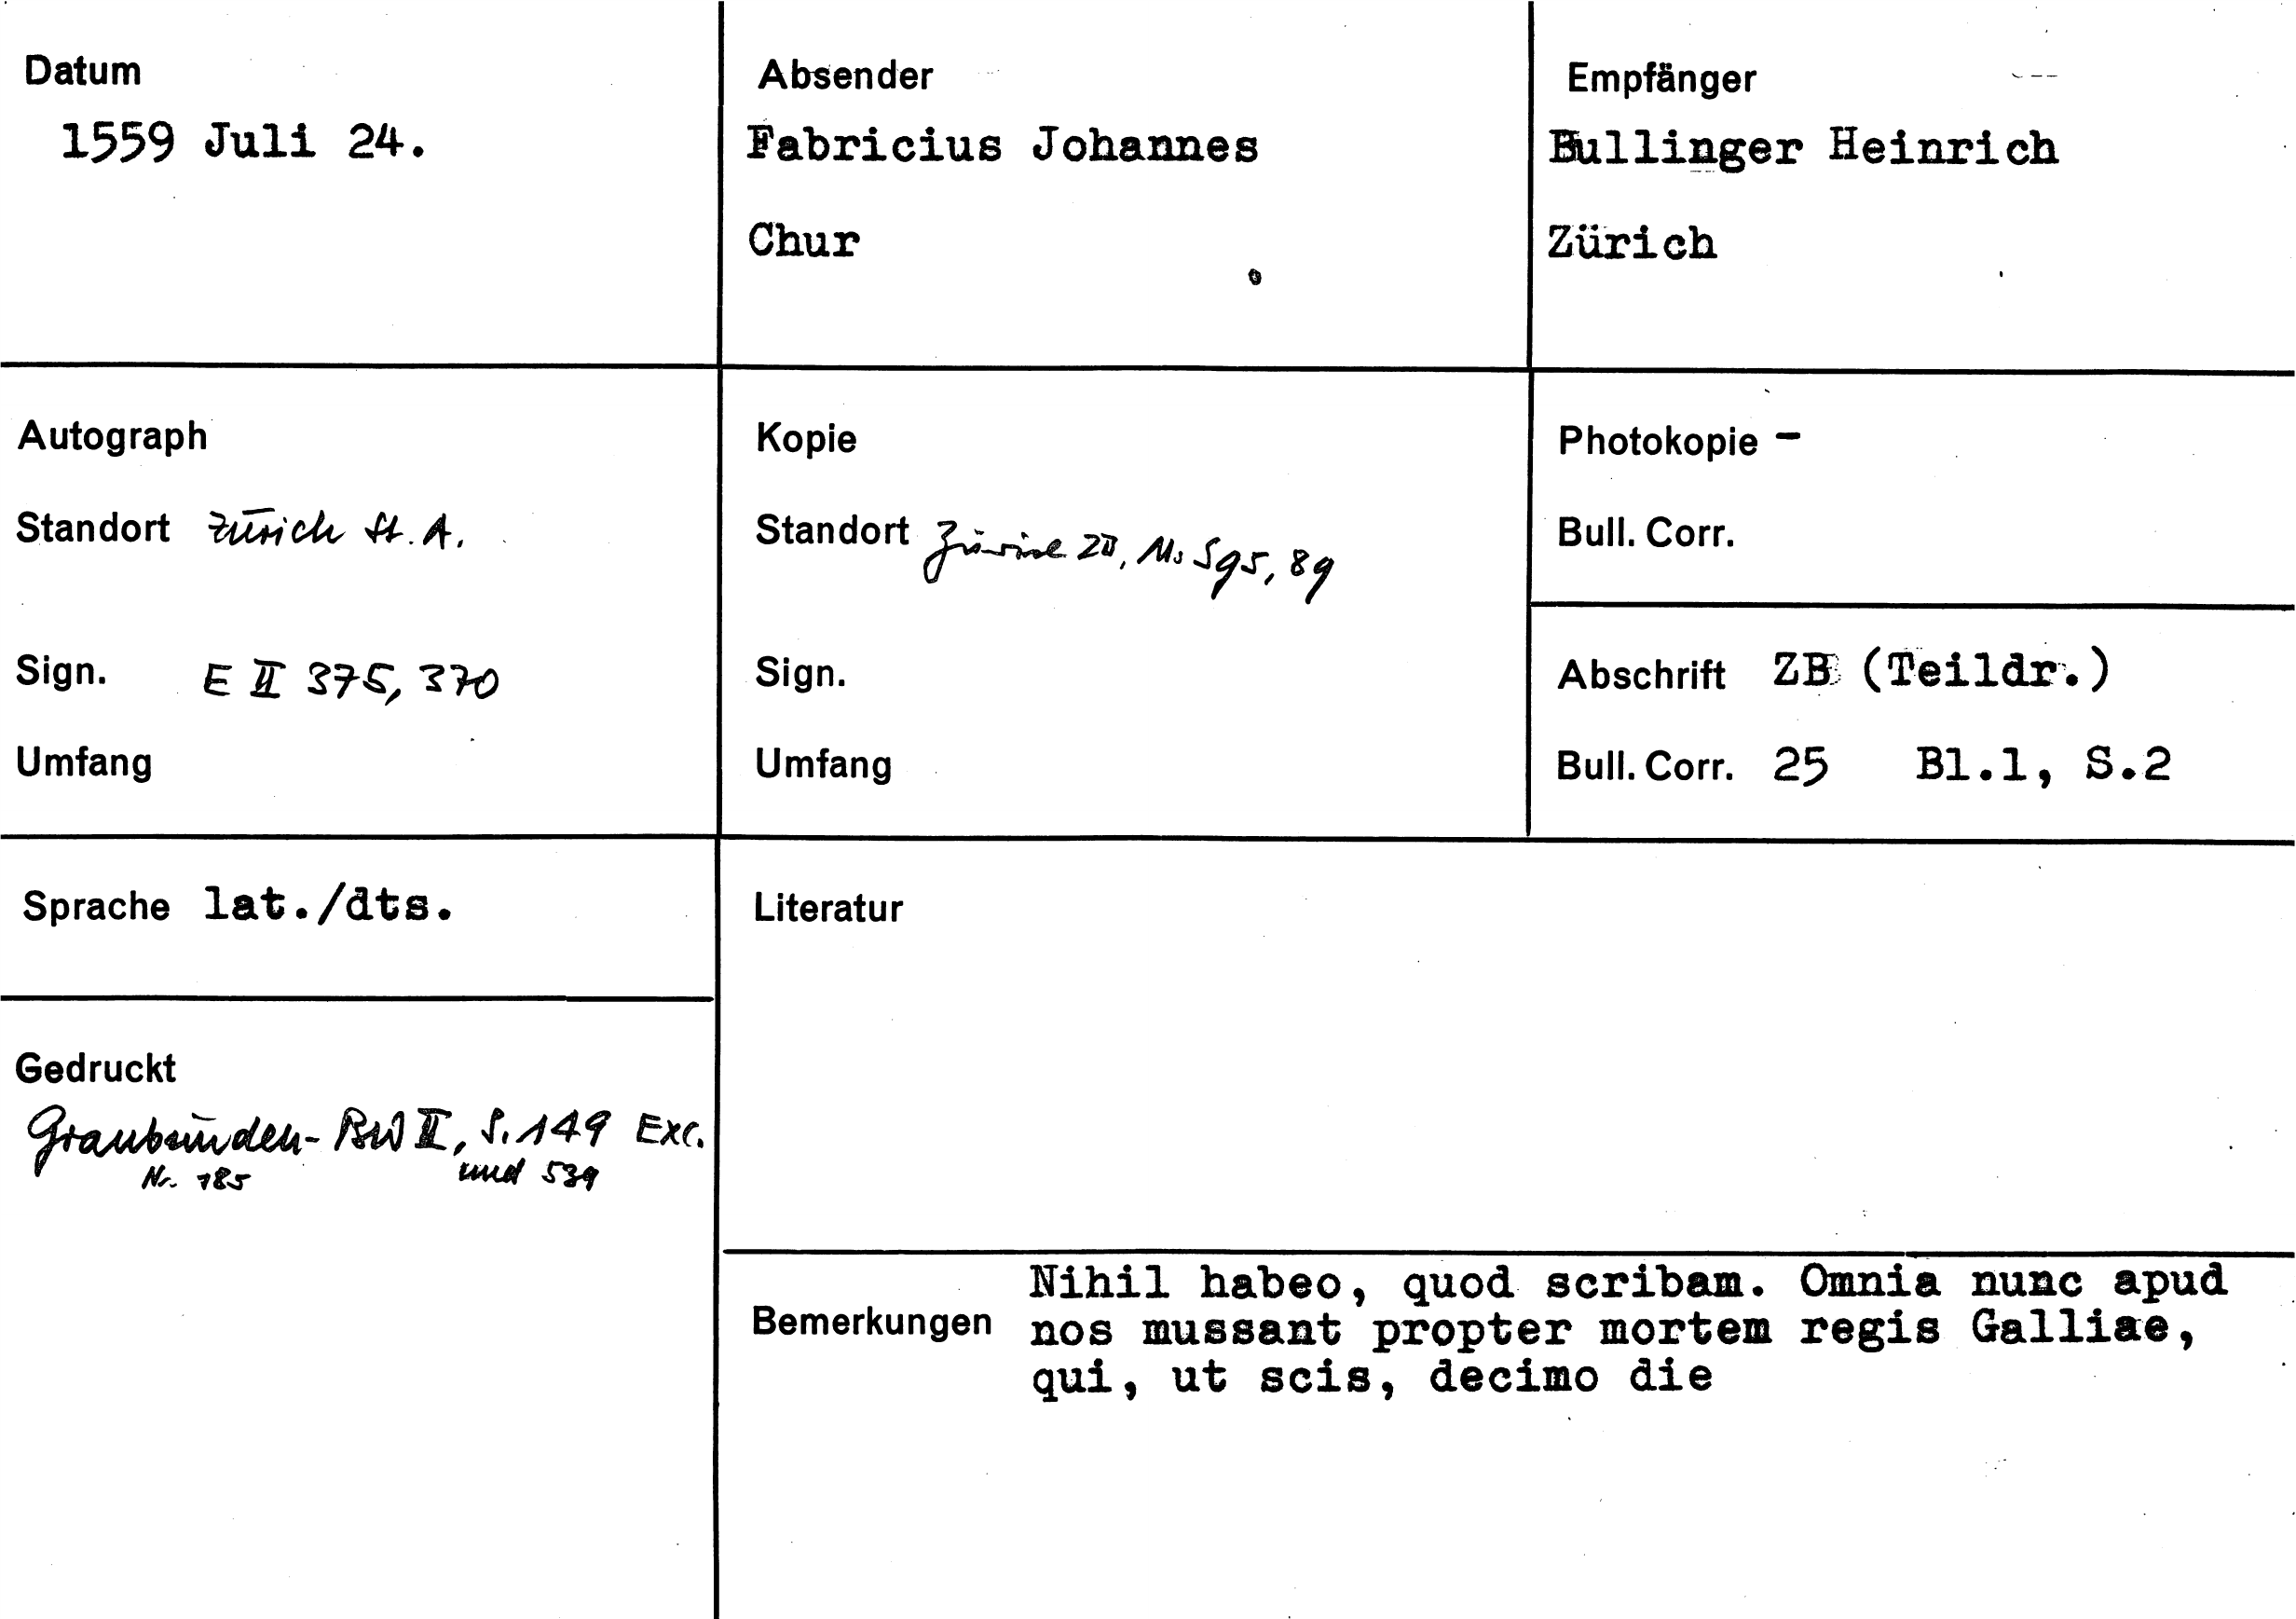 Datum
1559 Juli 24.
Absender
Fabricius Johannes
Chur
Empfänger
Bullinger Heinrich
Zürich
Autograph
Standort Zürich St. A.
Sign. E II 375, 370
Umfang
Kopie
Standort Zürich ZB, Ms S 95, 89
Sign.
Umfang
Photokopie -
Bull. Corr.
Abschrift ZB (Teildr.)
Bull. Corr. 25 Bl.1, S.2
Sprache lat./dts.
Gedruckt
Graubünden-BW II, S. 149 Exc.
Nr. 185 und 539
Literatur
Bemerkungen
Nihil habeo, quod scribam. Omnia nunc apud
nos mussant propter mortem regis Galliae,
qui, ut scis, decimo die